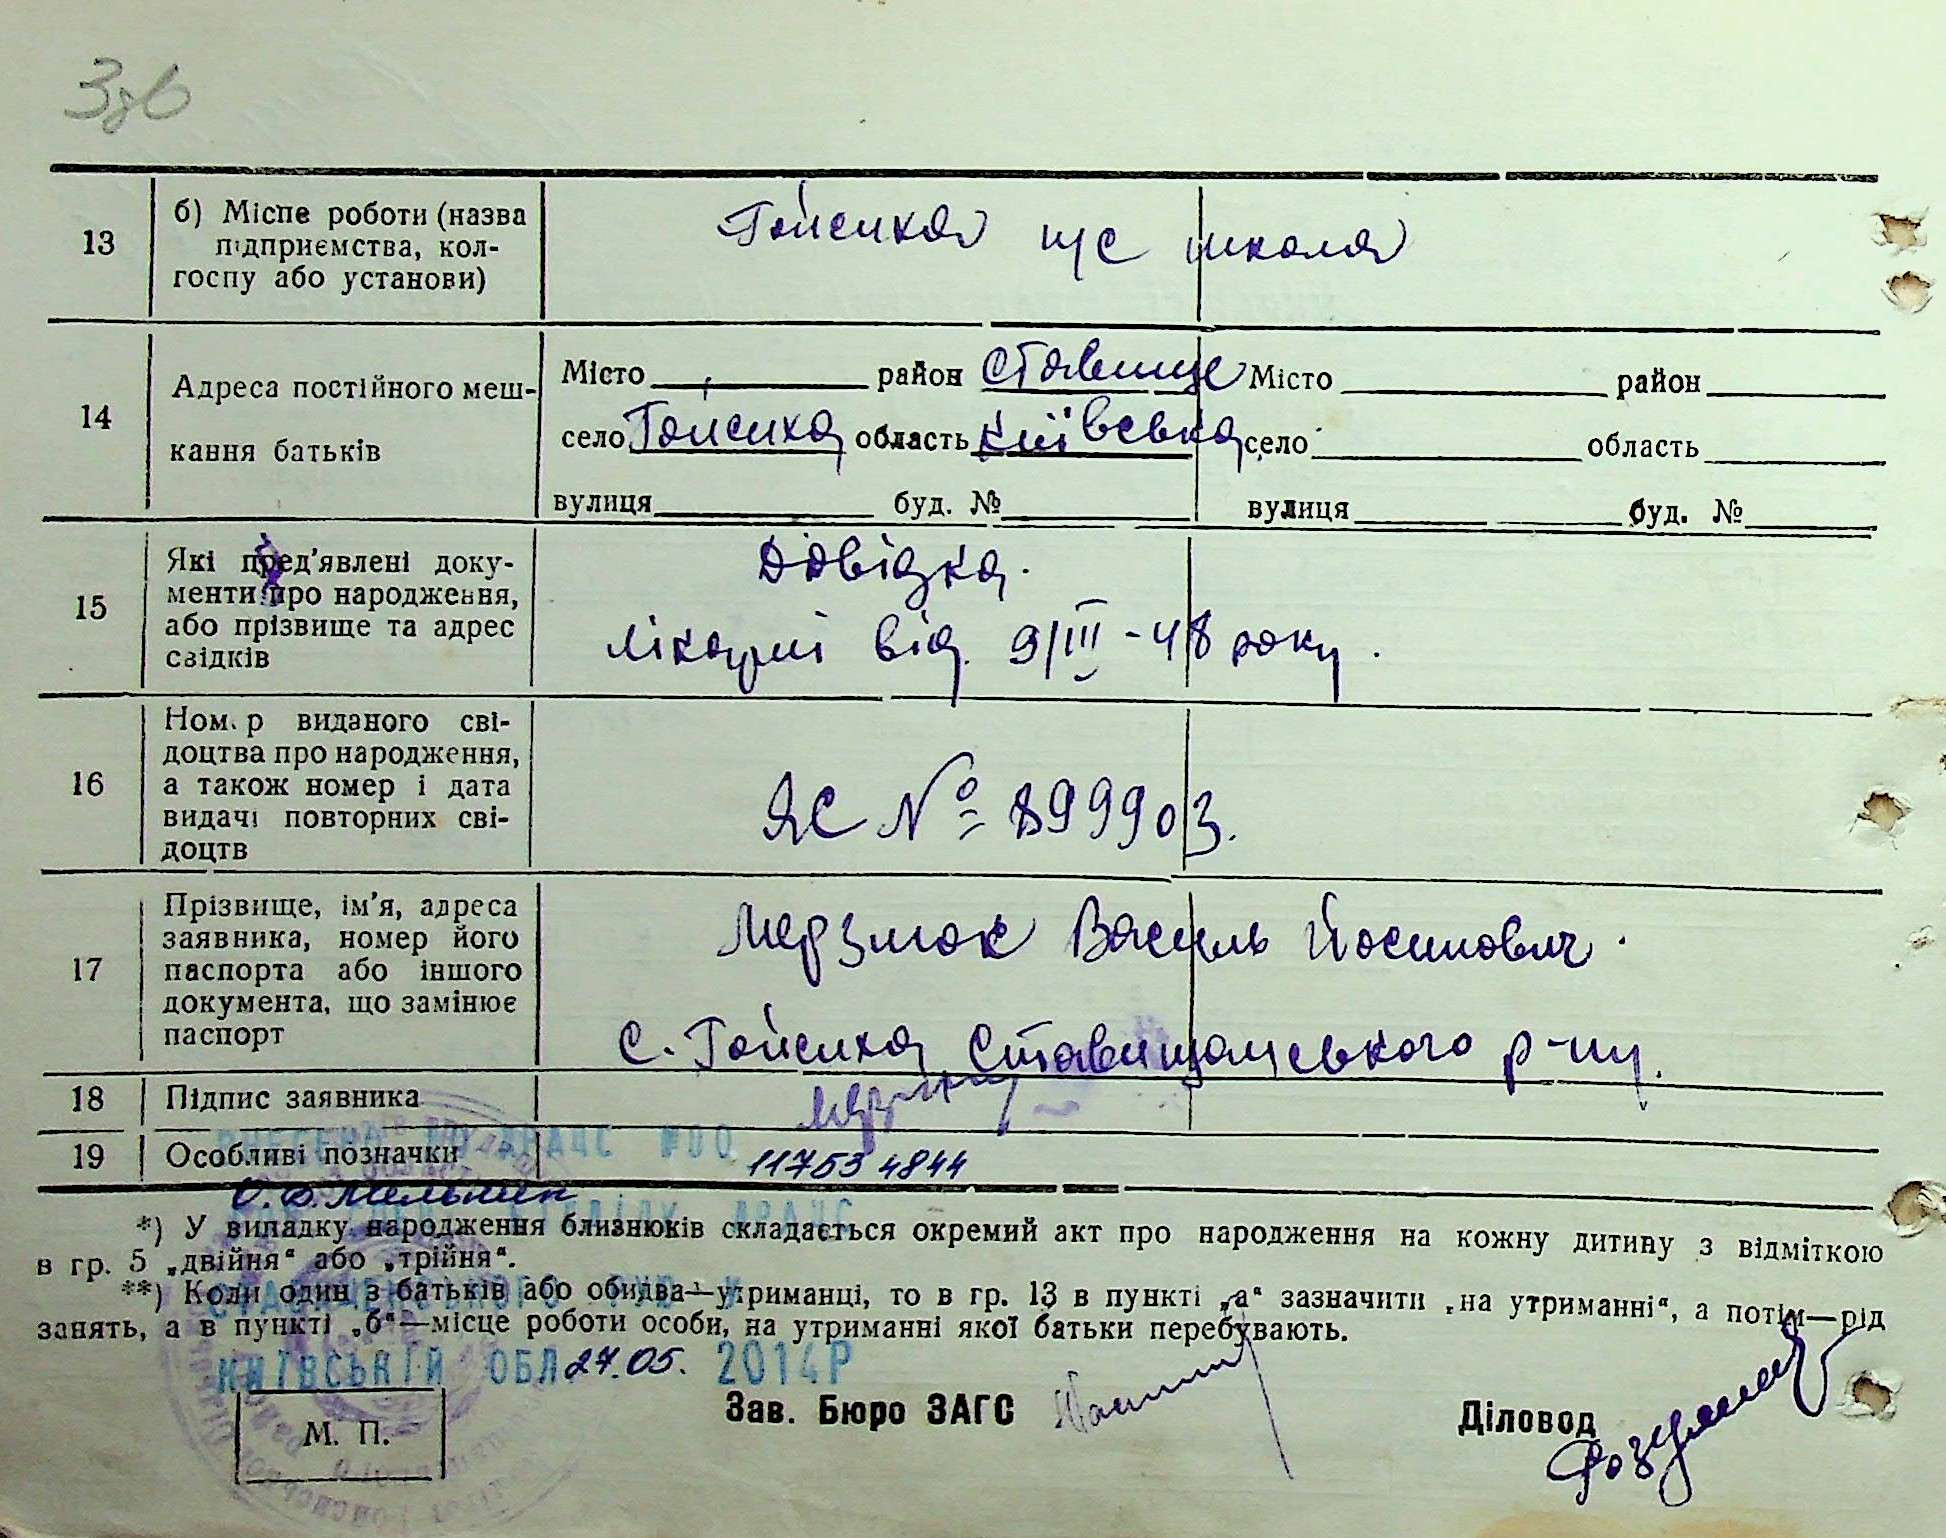 Звб
13
б) Місце роботи (назва
підприємства, кол-
госпу або установи)
Гойсиха н/с школа
14
Адреса постійного меш-
кання батьків
Місто район Ставище Місто район
село Гойсиха область Київська село область
вулиця буд. № вулиця буд. №
15
Які пред'явлені доку-
менти про народження,
або прізвище та адрес
свідків
Довідка.
лікарні від 9/III-48 року.
16
Номер виданого сві-
доцтва про народження,
а також номер і дата
видачі повторних сві-
доцтв
ЯС № 899903.
17
Прізвище, ім'я, адреса
заявника, номер його
паспорта або іншого
документа, що замінює
паспорт
Мерзлюк Василь Йосипович.
с. Гойсиха Ставищанського р-ну.
18
Підпис заявника
19
Особливі позначки
11753 4844
ВНЕСЕНО ДРАЦС №00
О.Ф. Мельник
ВІДДІЛУ ДРАЦС
*) У випадку народження близнюків складається окремий акт про народження на кожну дитину з відміткою
в гр. 5 „двійня“ або „трійня“.
**) Коли один з батьків або обидва—утриманці, то в гр. 13 в пункті „а“ зазначити „на утриманні“, а потім—рід
занять, а в пункті „б“—місце роботи особи, на утриманні якої батьки перебувають.
КИЇВСЬКІЙ ОБЛ 27.05. 2014Р
Зав. Бюро ЗАГС
Діловод
М. П.